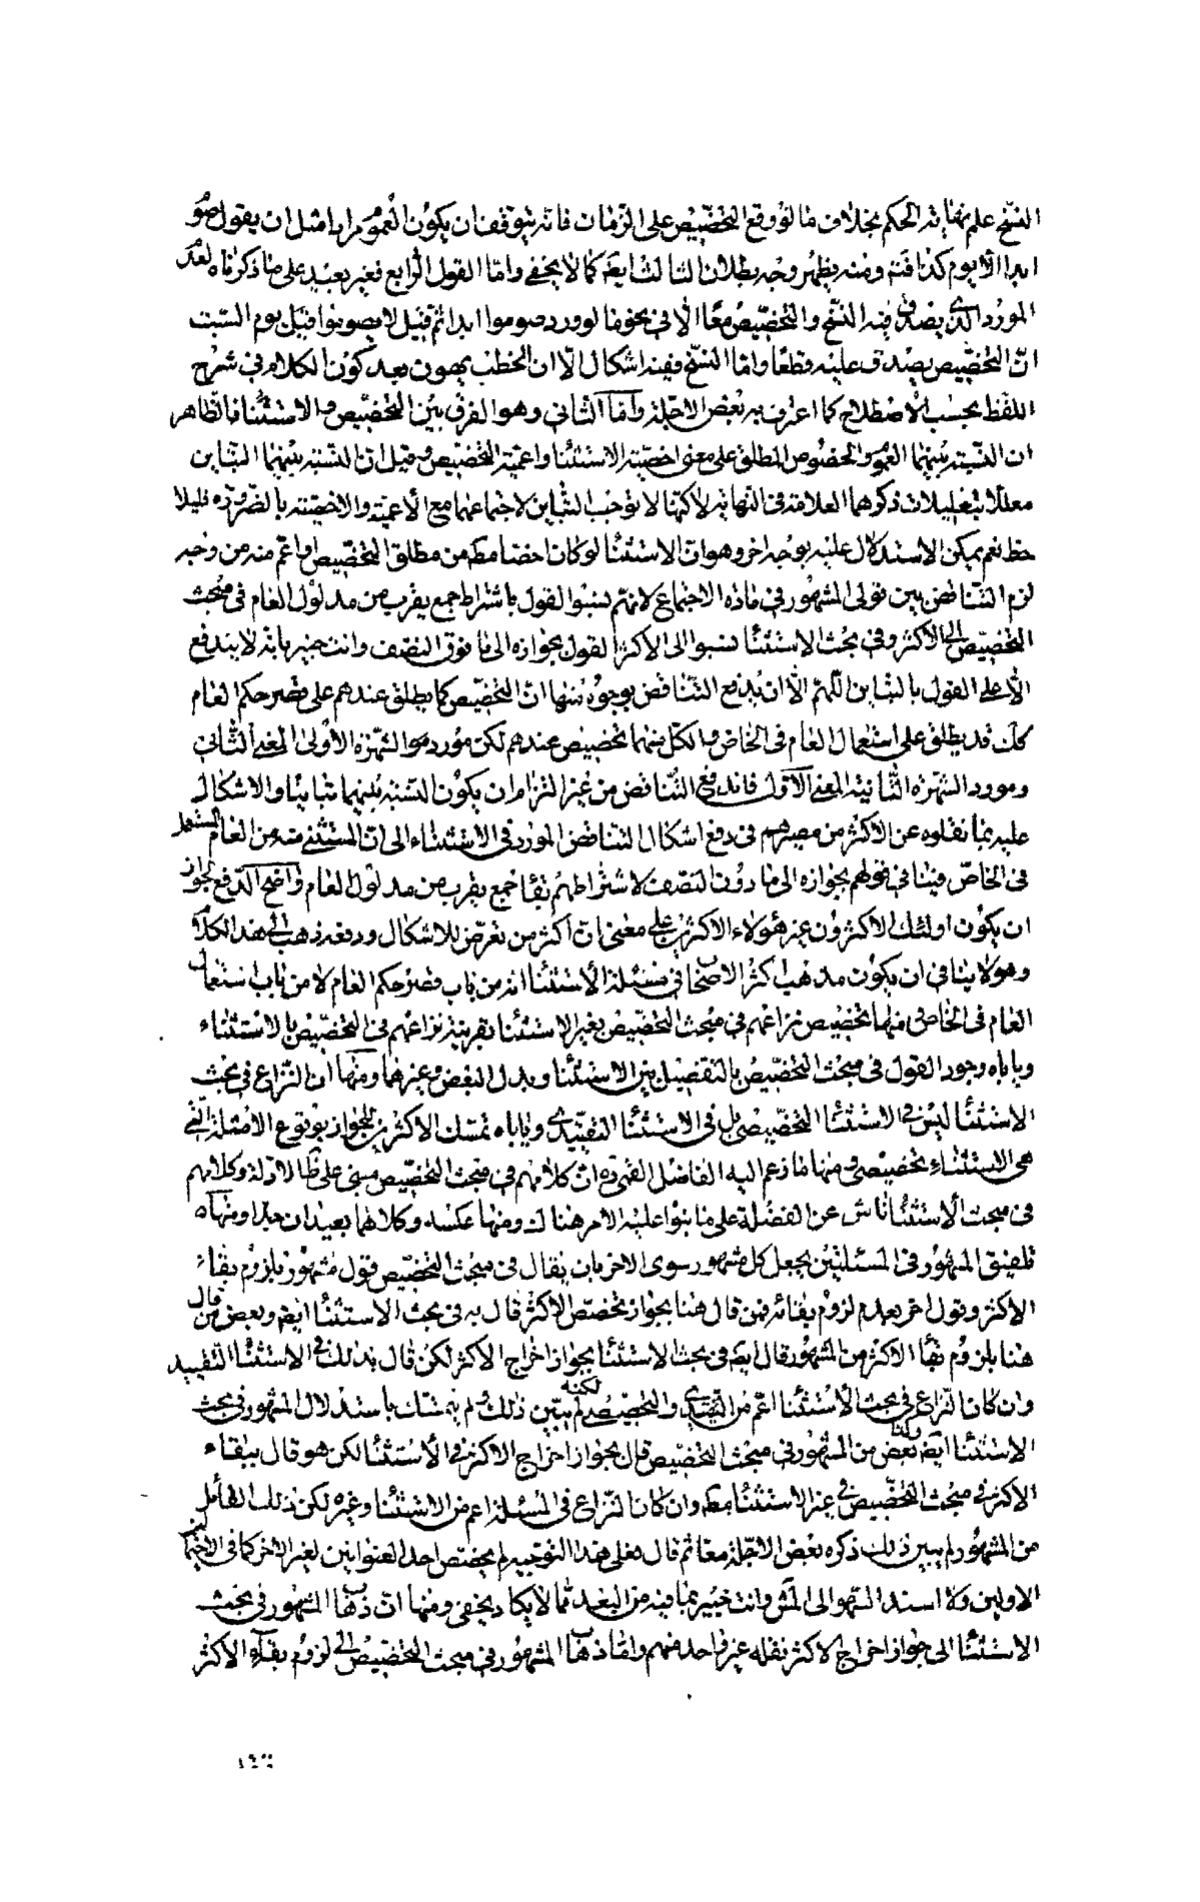 النسخ علم نهاية الحكم بخلاف ما لو وقع التخصيص على الزمان فانه يتوقف ان يكون العموم مرادا مثل ان يقول صوموا
ابدا الا يوم كذا فتم ومنه يظهر وجه بطلان الثالث ايضا كما لا يخفى واما القول الرابع فغير بعيد على ما ذكرناه لعدم
المورد الذى يصدق فيه النسخ والتخصيص معا الا فى نحو ما لو ورد صوموا ابدا ثم قيل لا يصوموا قبل يوم السبت
انّ التخصيص يصدق عليه قطعا واما النسخ ففيه اشكال الّا ان الخطب يهون بعد كون الكلام فى شرح
اللفظ بحسب الاصطلاح كما اعترف به بعض الاجلة وامّا الثانى وهو الفرق بين التخصيص والاستثناء فالظاهر
ان النسبة بينهما العموم والخصوص المطلق على معنى اخصيّة الاستثناء واعمية التخصيص وقيل ان النسبة بينهما التباين
معللا بتعليلات ذكرها العلامة فى النهاية لكنها لا توجب التباين لاجتماعها مع الاعمية والاخصيّة بالضرورة فليلا
حظ نعم يمكن الاستدلال عليه بوجه اخر وهو ان الاستثناء لو كان اخص مطلقا من مطلق التخصيص او اعم منه من وجه
لزم التناقض بين قولى المشهور فى مادة الاجتماع لانهم نسبوا القول باشتراط جمع يقرب من مدلول العام فى مبحث
التخصيص الى الاكثر وفى بحث الاستثناء نسبوا الى الاكثر القول بجوازه الى ما فوق النصف وانت خبير بانه لا يندفع
الّا على القول بالتباين اللّهم الّا ان يدفع التناقض بوجوه منها انّ التخصيص كما يطلق عندهم على قصر حكم العام
كك قد يطلق على استعمال العام فى الخاص والكل منهما تخصيص عندهم لكن مورد الشهرة الاولى المعنى الثانى
ومورد الشهرة الثانية المعنى الاوّل فاندفع التناقض من غير التزام ان يكون النسبة بينهما تباينا والاشكال
عليه بما نقلوه عن الاكثر من مصيرهم فى دفع اشكال التناقض المورد فى الاستثناء الى ان المستثنى منه من العام المستعمل
فى الخاصّ فينافى قولهم بجوازه الى ما دون النصف لاشتراطهم بقاء جمع يقرب من مدلول العام واضح الدفع لجواز
ان يكون اولئك الاكثرون غير هؤلاء الاكثرين على معنى انّ اكثر من تعرّض للاشكال ودفعه ذهب الى هذا الكلام
وهو لا ينافى ان يكون مذهب اكثر الاصحاب فى مسئلة الاستثناء انه من باب قصر حكم العام لا من باب استعمال
العام فى الخاص ومنها تخصيص نزاعهم فى مبحث التخصيص بغير الاستثناء بقرينة نزاعهم فى التخصيص بالاستثناء
وياباه وجود القول فى مبحث التخصيص بالتفصيل بين الاستثناء وبدل البعض وغيرهما ومنها ان النزاع فى بحث
الاستثناء ليس فى الاستثناء التخصيصى بل فى الاستثناء التقييدى وياباه تمسك الاكثرين للجواز بوقوع الامثلة الّتى
هى الاستثناء تخصيصى ومنها ما زعم اليه الفاضل القمى ره ان كلامهم فى مبحث التخصيص مبنى على ظ الادلة وكلامهم
فى مبحث الاستثناء ناش عن الغفلة على ما بنوا عليه الامر هناك ومنها عكسه وكلاهما بعيدان جدا ومنها
تلفيق المشهور فى المسئلتين بجعل كل مشهور سوى الاخر بان يقال فى مبحث التخصيص قول مشهور بلزوم بقاء
الاكثر وقول اخر بعدم لزوم بقائه فمن قال هنا بجواز تخصيص الاكثر قال به فى بحث الاستثناء ايضا وبعض من قال
هنا بلزوم بقاء الاكثر من المشهور قال ايضا فى بحث الاستثناء بجواز اخراج الاكثر لكن قال بذلك فى الاستثناء التقييد
وان كان النزاع فى بحث الاستثناء اعم من التقييدى والتخصيصى لكنه لم يبيّن ذلك ولم يتمسك باستدلال المشهور فى بحث
الاستثناء ايضا بعض من المشهور فى مبحث التخصيص قال بجواز اخراج الاكثر فى الاستثناء لكن هو قال ببقاء
الاكثر فى مبحث التخصيص فى غير الاستثناء وان كان النزاع فى المسئلة اعم من الاستثناء وغيره لكن ذلك القائل
من المشهور لم يبين ذلك ذكره بعض الاجلة معا ثم قال فعلى هذا التوجيه لم يختص احد العنوانين لغير الاخر كما فى
الاولين ولا اسند السهو الى المش وانت خبير بما فيه من البعد ممّا لا يكاد يخفى ومنها انّ ذهاب المشهور فى بحث
الاستثناء الى جواز اخراج الاكثر نقله غير واحد منهم وامّا ذهاب المشهور فى مبحث التخصيص الى لزوم بقاء الاكثر